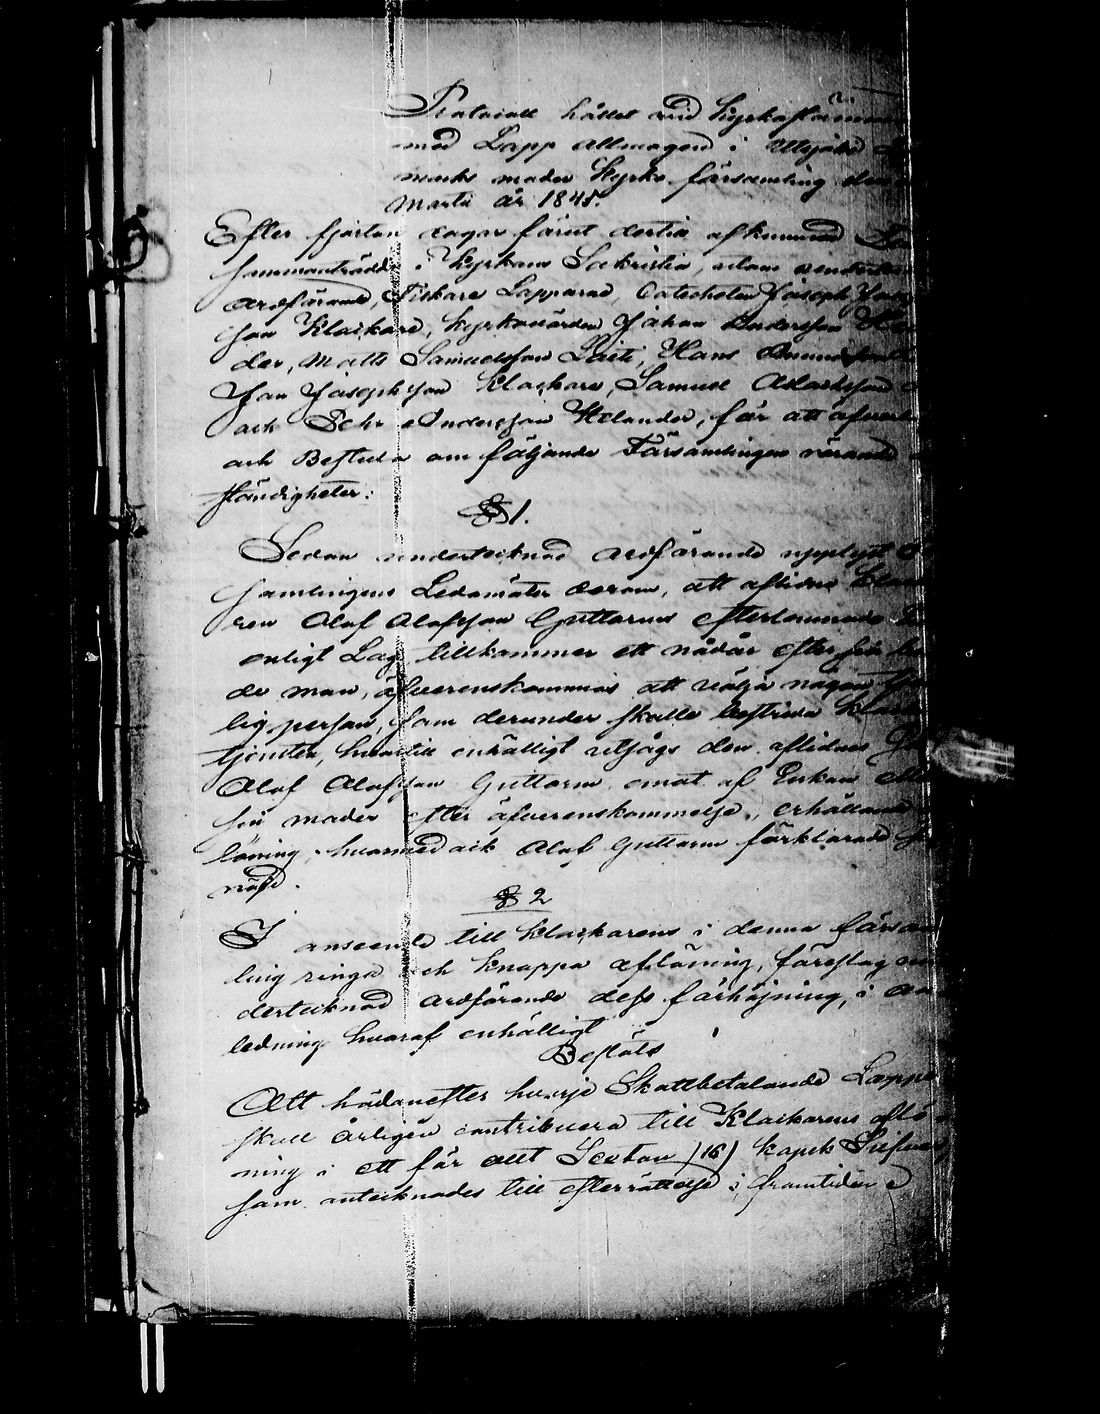 Protocoll hållet vid Kyrkostämma
med Lapp Allmogen i Utsjoki
marks moder Kyrko församling den
Martii år 1845.
Efter fjorton dagar förut dertill afkunnad
sammanträdde i Kyrkans Sakristia, utom undertecknad
ordförande, Fiskare Lapparne, Catecheten Joseph
son Klockare, kyrkovärden Johan Andersson
der, Matts Samuelsson Laiti, Hans
Jan Josephsson Klockare, Samuel Aslaksson
och Pehr Andersson Helander, för att öfverlägga
och Besluta om följande Församlingen rörande
ständigheter:
§ 1.
Sedan undertecknad ordförande upplyst
samlingens Ledamöter derom, att aflidne
ren Olof Olofsson Guttorms efterlemnade
enligt Lag tillkommer ett nådår efter sin
de man, öfverenskommos att välja någon
lig person, som derunder skulle bestrida
tjensten, hvartill enhälligt utsågs den aflidnes
Olof Olofsson Guttorm emot af Enkan
sin moder efter öfverenskommelse, erhållande
löning, hvarmed ock Olof Guttorm förklarade
nöjd.
§ 2
I anseende till Klockarens i denna församling
ling ringa och knappa aflöning, föreslog
dertecknad ordförande dess förhöjning, i
ledning hvaraf enhälligt
Beslöts
Att hädanefter hvarje Skattbetalande Lapp
skall årligen contribuera till Klockarens aflö
ning i ett för allt Sexton /16/ kopek Silfver,
som antecknades till efterrättelse i framtiden